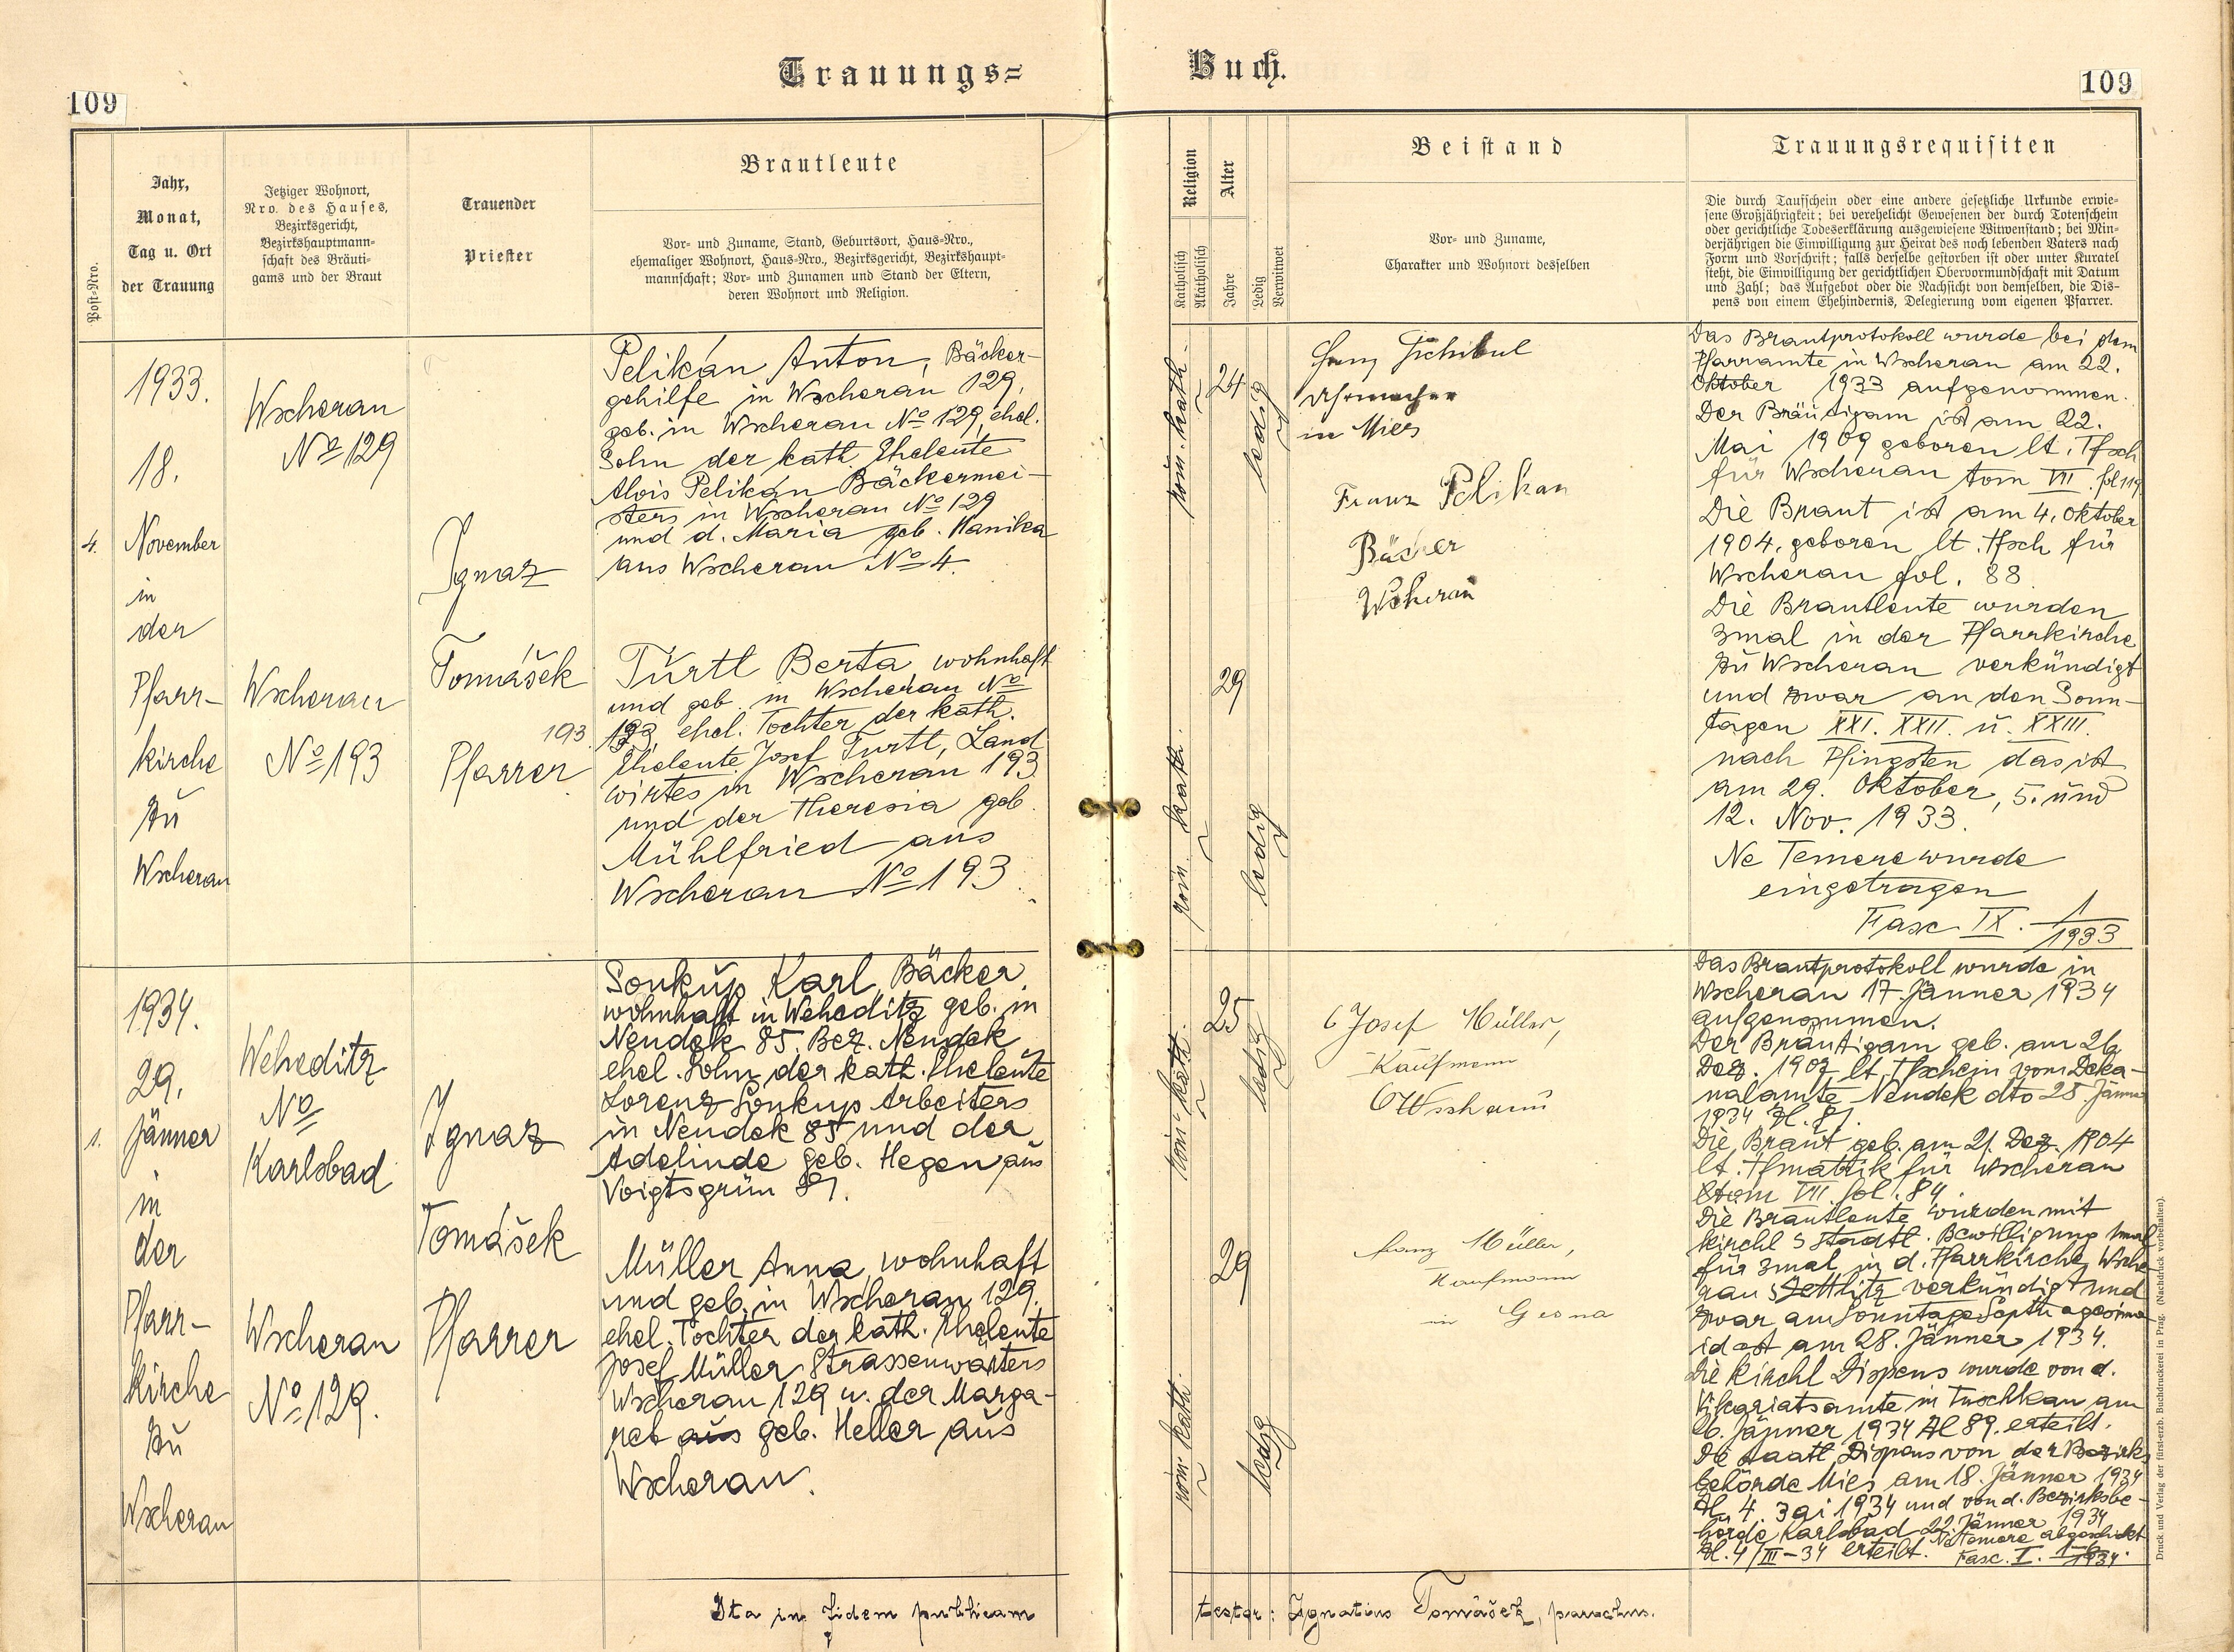 Trauungs=
Buch.
109
109
Post-Nro.
Jahr,
Monat,
Tag u. Ort
der Trauung
Jetziger Wohnort,
Nro. des Hauses,
Bezirksgericht,
Bezirkshauptmann-
schaft des Bräuti-
gams und der Braut
Trauender
Priester
Brautleute
Vor- und Zuname, Stand, Geburtsort, Haus-Nro.,
ehemaliger Wohnort, Haus-Nro., Bezirksgericht, Bezirkshaupt-
mannschaft; Vor- und Zunamen und Stand der Eltern,
deren Wohnort und Religion.
Religion
Katholisch
Akatholisch
Alter
Jahre
Ledig
Verwitwet
Beistand
Vor- und Zuname,
Charakter und Wohnort desselben
Trauungsrequisiten
Die durch Taufschein oder eine andere gesetzliche Urkunde erwie-
sene Großjährigkeit; bei verehelicht Gewesenen der durch Totenschein
oder gerichtliche Todeserklärung ausgewiesene Witwenstand; bei Min-
derjährigen die Einwilligung zur Heirat des noch lebenden Vaters nach
Form und Vorschrift; falls derselbe gestorben ist oder unter Kuratel
steht, die Einwilligung der gerichtlichen Obervormundschaft mit Datum
und Zahl; das Aufgebot oder die Nachsicht von demselben, die Dis-
pens von einem Ehehindernis, Delegierung vom eigenen Pfarrer.
4.
1933.
18.
November
in
der
Pfarr-
kirche
zu
Wscherau
Wscherau
No 129
Wscherau
No 193
Ignaz
Tomášek
Pfarrer
Pelikán Anton, Bäcker-
gehilfe in Wscherau 129,
geb. in Wscherau No 129, ehel.
Sohn der kath. Eheleute
Alois Pelikán Bäckermei-
sters in Wscherau No 129
und d. Maria geb. Hanika
aus Wscherau No 4.
Türtl Berta wohnhaft
und geb. in Wscherau No
193 193 ehel. Tochter der kath.
Eheleute Josef Türtl, Land
wirtes in Wscherau 193
und der Theresia geb.
Mühlfried aus
Wscherau No 193.
röm. kath.
24
ledig
röm. kath.
29
ledig
Uhrmacher
in Mies
Franz Pelikan
Bäcker
Wscherau
Das Brautprotokoll wurde bei dem
Pfarramte in Wscherau am 22.
Oktober 1933 aufgenommen.
Der Bräutigam ist am 22.
Mai 1909 geboren lt. Tfsch
für Wscherau tom VII. fol 119
Die Braut ist am 4. Oktober
1904. geboren lt. Tfsch für
Wscherau fol. 88
Die Brautleute wurden
3mal in der Pfarrkirche
zu Wscherau verkündigt
und zwar an den Sonn-
tagen XXI. XXII. u. XXIII.
nach Pfingsten das ist
am 29. Oktober, 5. und
12. Nov. 1933.
Ne Temere wurde
eingetragen
Fasc. IX. 1/1933
1.
1934.
29.
Jänner
in
der
Pfarr-
kirche
zu
Wscherau
Weheditz
No
Karlsbad
Wscherau
No 129.
Ignaz
Tomášek
Pfarrer
Soukup Karl, Bäcker
wohnhaft in Weheditz geb. in
Neudek 85. Bez. Neudek
ehel. Sohn der kath. Eheleute
Lorenz Soukup Arbeiters
in Neudek 85 und der
Adelinde geb. Hegen aus
Voigtsgrün
Müller Anna, wohnhaft
und geb. in Wscherau 129.
ehel. Tochter der kath. Eheleute
Josef Müller Strassenwärters
Wscherau 129 u. der Marga-
reb aus geb. Heller aus
Wscherau.
röm. kath.
25
ledig
röm. kath.
29
ledig
Josef Müller,
Kaufmann
Wscherau
Franz Müller,
Kaufmann
in
Das Brautprotokoll wurde in
Wscherau 17. Jänner 1934
aufgenommen.
Der Bräutigam geb. am 26
Dez. lt. Tfschein vom Deka-
nalamte Neudek dto 28. Jänner
1934
Die Braut geb. am 21. Dez. 1904
lt. Tfmatrik für Wscherau
tom VII. fol. 84.
Die Brautleute wurden mit
kirchl. s staatl. Bewilligung 1mal
für 3mal in d. Pfarrkirche Wsche
rau s Zettlitz verkündigt und
zwar am Sonntage Septuagesima
id est am 28. Jänner 1934.
Die kirchl Dispens wurde von d.
Vikariatsamte in Tuschkau am
Jänner 1934 Zl 89. erteilt.
Die staatl Dispens von der Bezirks
behörde Mies am 18. Jänner 1934
Zl. 4. 1934 und von d. Bezirksbe-
hörde Karlsbad 22. Jänner 1934
Zl. 4/III-34 erteilt. Ne Temere abgeschickt
Fasc. I. 1934.
Ita in fidem publicam
testor: Ignatius Tomášek, parochus.
Druck und Verlag der fürst-erzb. Buchdruckerei in Prag. (Nachdruck vorbehalten).